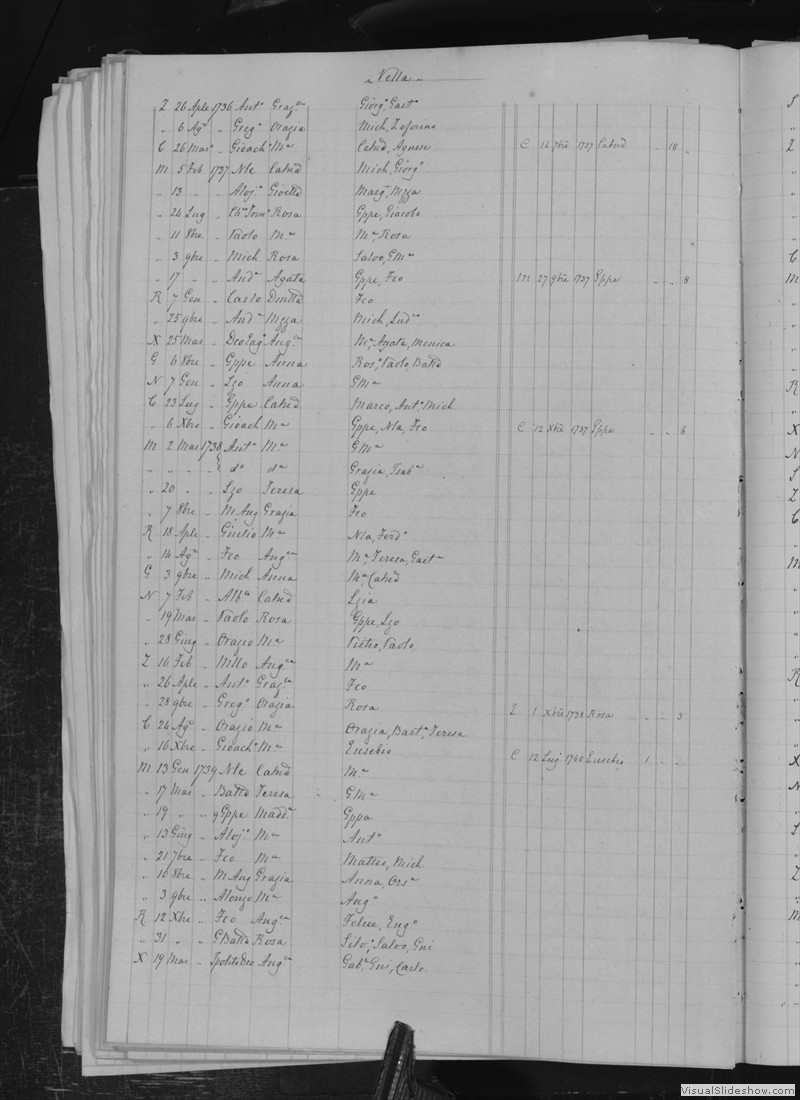 Vella
Z 26 Aple 1736 Antº Grazª Giorgº, Gaetº
" 6 Agº " Gregº Orazia Mich, Zeferino
C 26 Marº " Gioachº Mª Catnd, Agnese C 14 7bre 1737 Catnd " 18 "
M 5 Feb 1737 Nle Catnd Mich, Giorgº
" 13 " " Alojº Margª, Mzza
" 24 Lug " Rosa Gppe, Giacobo
" 11 8bre " Paolo Mª Mª, Rosa
" 3 9bre " Mich Rosa Salvo, GMª
" 17 " " Andª Agata Gppe, Fco M 27 9bre 1737 Gppe " " 8
R 7 Gen " Carlo Fco
" 25 9bre " Andª Mzza Mich, Ludª
X 25 Mar " Angª Mª, Agata, Menica
G 6 8bre " Gppe Anna Rosª, Paolo, Battd
N 7 Gen " Lzo Anna GMª
C 23 Lug " Gppe Catnd Marco, Antº, Mich
" 6 Xbre " Gioach Mª Gppe, Nla, Fco C 12 Xbre 1737 Gppe " " 6
M 2 Mar 1738 Antº Mª GMª
" " " " dº dª Grazia, Isabª
" 20 " " Lzo Teresa Gppe
" 7 8bre " M Ang Grazia Fco
R 18 Aple " Giulio Mª Nla, Ferdº
" 14 Agº " Fco Angª Mª, Teresa, Gaetª
G 3 9bre " Mich Anna Mª, Catnd
N 7 Feb " Albº Catnd Lzia
" 19 Mar " Paolo Rosa Gppe, Lzo
" 28 Giug " Orazio Mª Pietro, Paolo
Z 16 Feb " Mllo Angª Mª
" 26 Aple " Antº Grazª Fco
" 28 9bre " Gregº Orazia Rosa Z 1 Xbre 1738 Rosa " " 3
C 24 Agº " Orazio Mª Orazia, Bartª, Teresa
" 16 Xbre " Gioachº Mª Eusebio C 12 Lug 1740 Eusebio 1 " "
M 13 Gen 1739 Nle Catnd Mª
" 17 Mar " Battd Teresa GMª
" 19 " " Gppe Maddª Gppa
" 13 Giug " Alojº Mª Antº
" 21 7bre " Fco Mª Matteo, Mich
" 10 8bre " M Ang Grazia Anna, Orsª
" 3 9bre " Alonzo Mª Angº
R 12 Xbre " Fco Angª Felice, Eugº
" 31 " " GBattd Rosa Silvº, Salvo, Gni
X 19 Mar " Angª Gabº, Gni, Carlo
VisualSlideshow.com